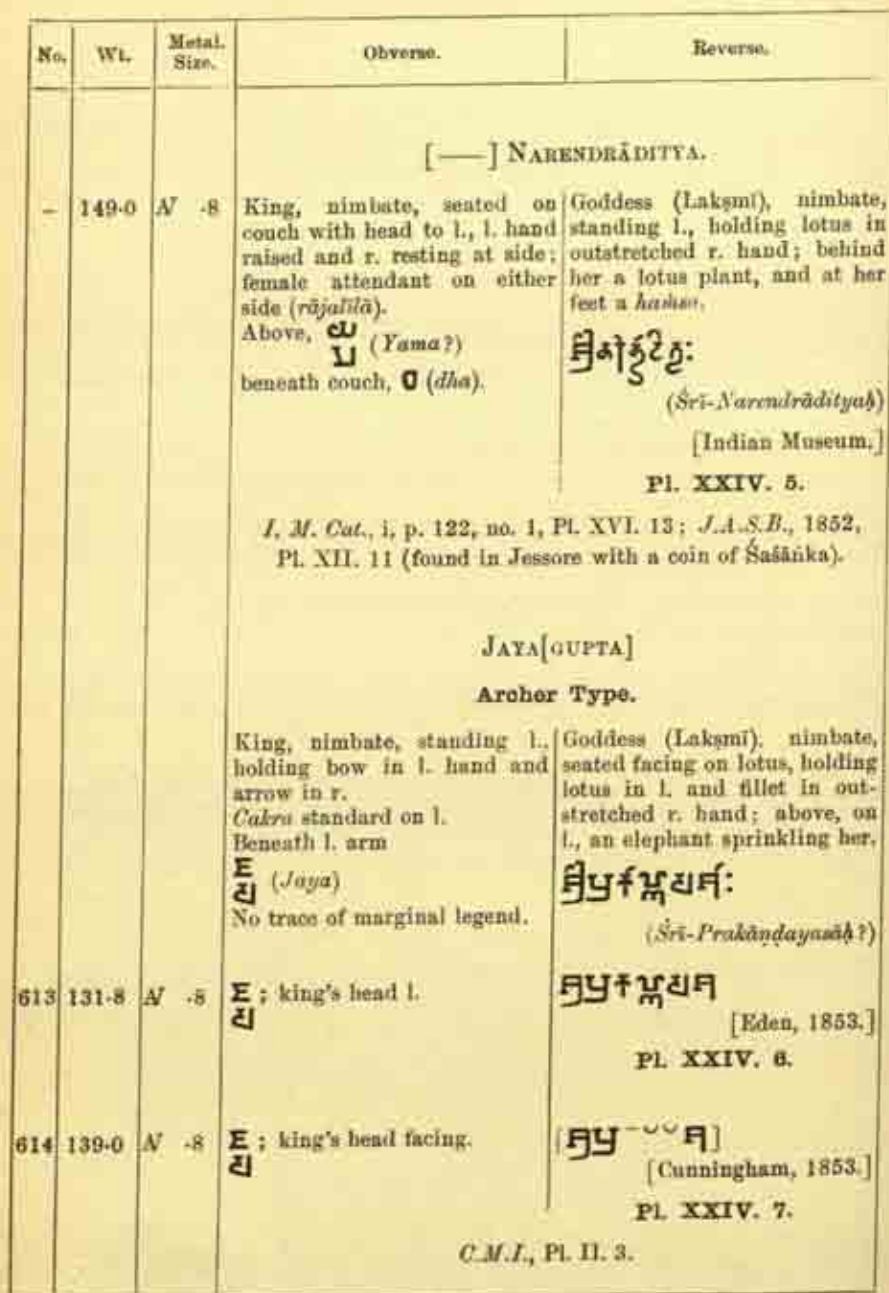 No. Wt. Metal. Size. Obverse. Reverse.
[——] NARENDRĀDITYA.
– 149·0 N ·8
King, nimbate, seated on
couch with head to l., l. hand
raised and r. resting at side;
female attendant on either
side (rājalīlā).
Above, (Yama?)
beneath couch, (dha).
Goddess (Lakṣmī), nimbate,
standing l., holding lotus in
outstretched r. hand; behind
her a lotus plant, and at her
feet a haṁsa.
(Śrī-Narendrādityaḥ)
[Indian Museum.]
Pl. XXIV. 5.
I. M. Cat., i, p. 122, no. 1, Pl. XVI. 13; J.A.S.B., 1852,
Pl. XII. 11 (found in Jessore with a coin of Śaśāṅka).
JAYA[GUPTA]
Archer Type.
King, nimbate, standing l.,
holding bow in l. hand and
arrow in r.
Cakra standard on l.
Beneath l. arm
(Jaya)
No trace of marginal legend.
Goddess (Lakṣmī), nimbate,
seated facing on lotus, holding
lotus in l. and fillet in out-
stretched r. hand; above, on
l., an elephant sprinkling her.
(Śrī-Prakāṇḍayaśāḥ?)
613 131·8 N ·8 ; king's head l.
[Eden, 1853.]
Pl. XXIV. 6.
614 139·0 N ·8 ; king's head facing.
[Cunningham, 1853.]
Pl. XXIV. 7.
C.M.I., Pl. II. 3.